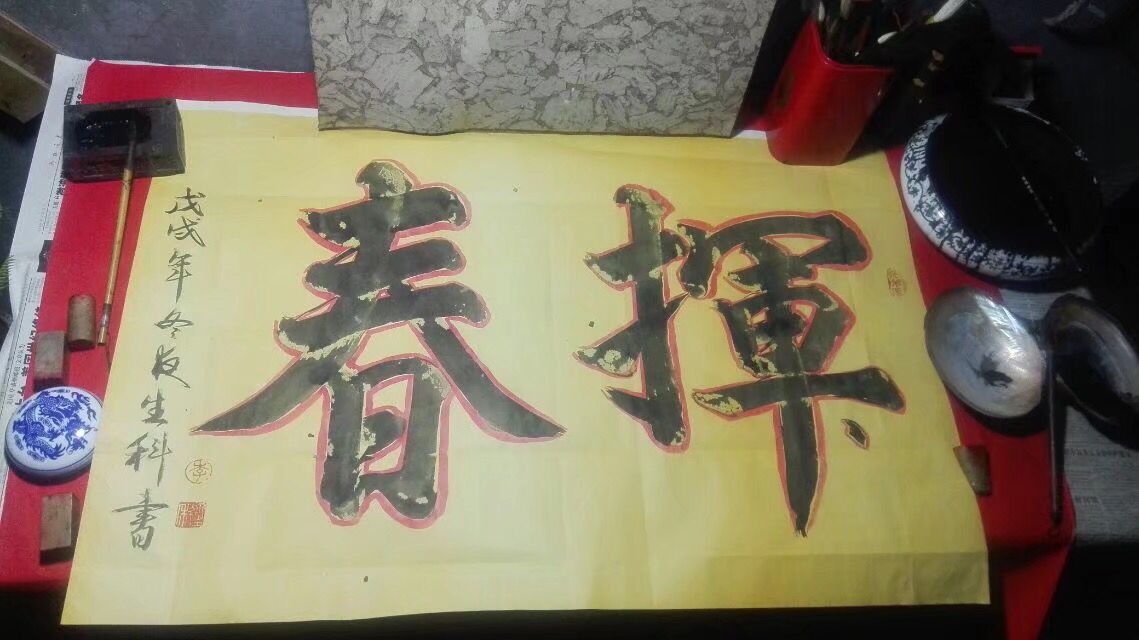 揮春
戊戌年冬夜生科書
李